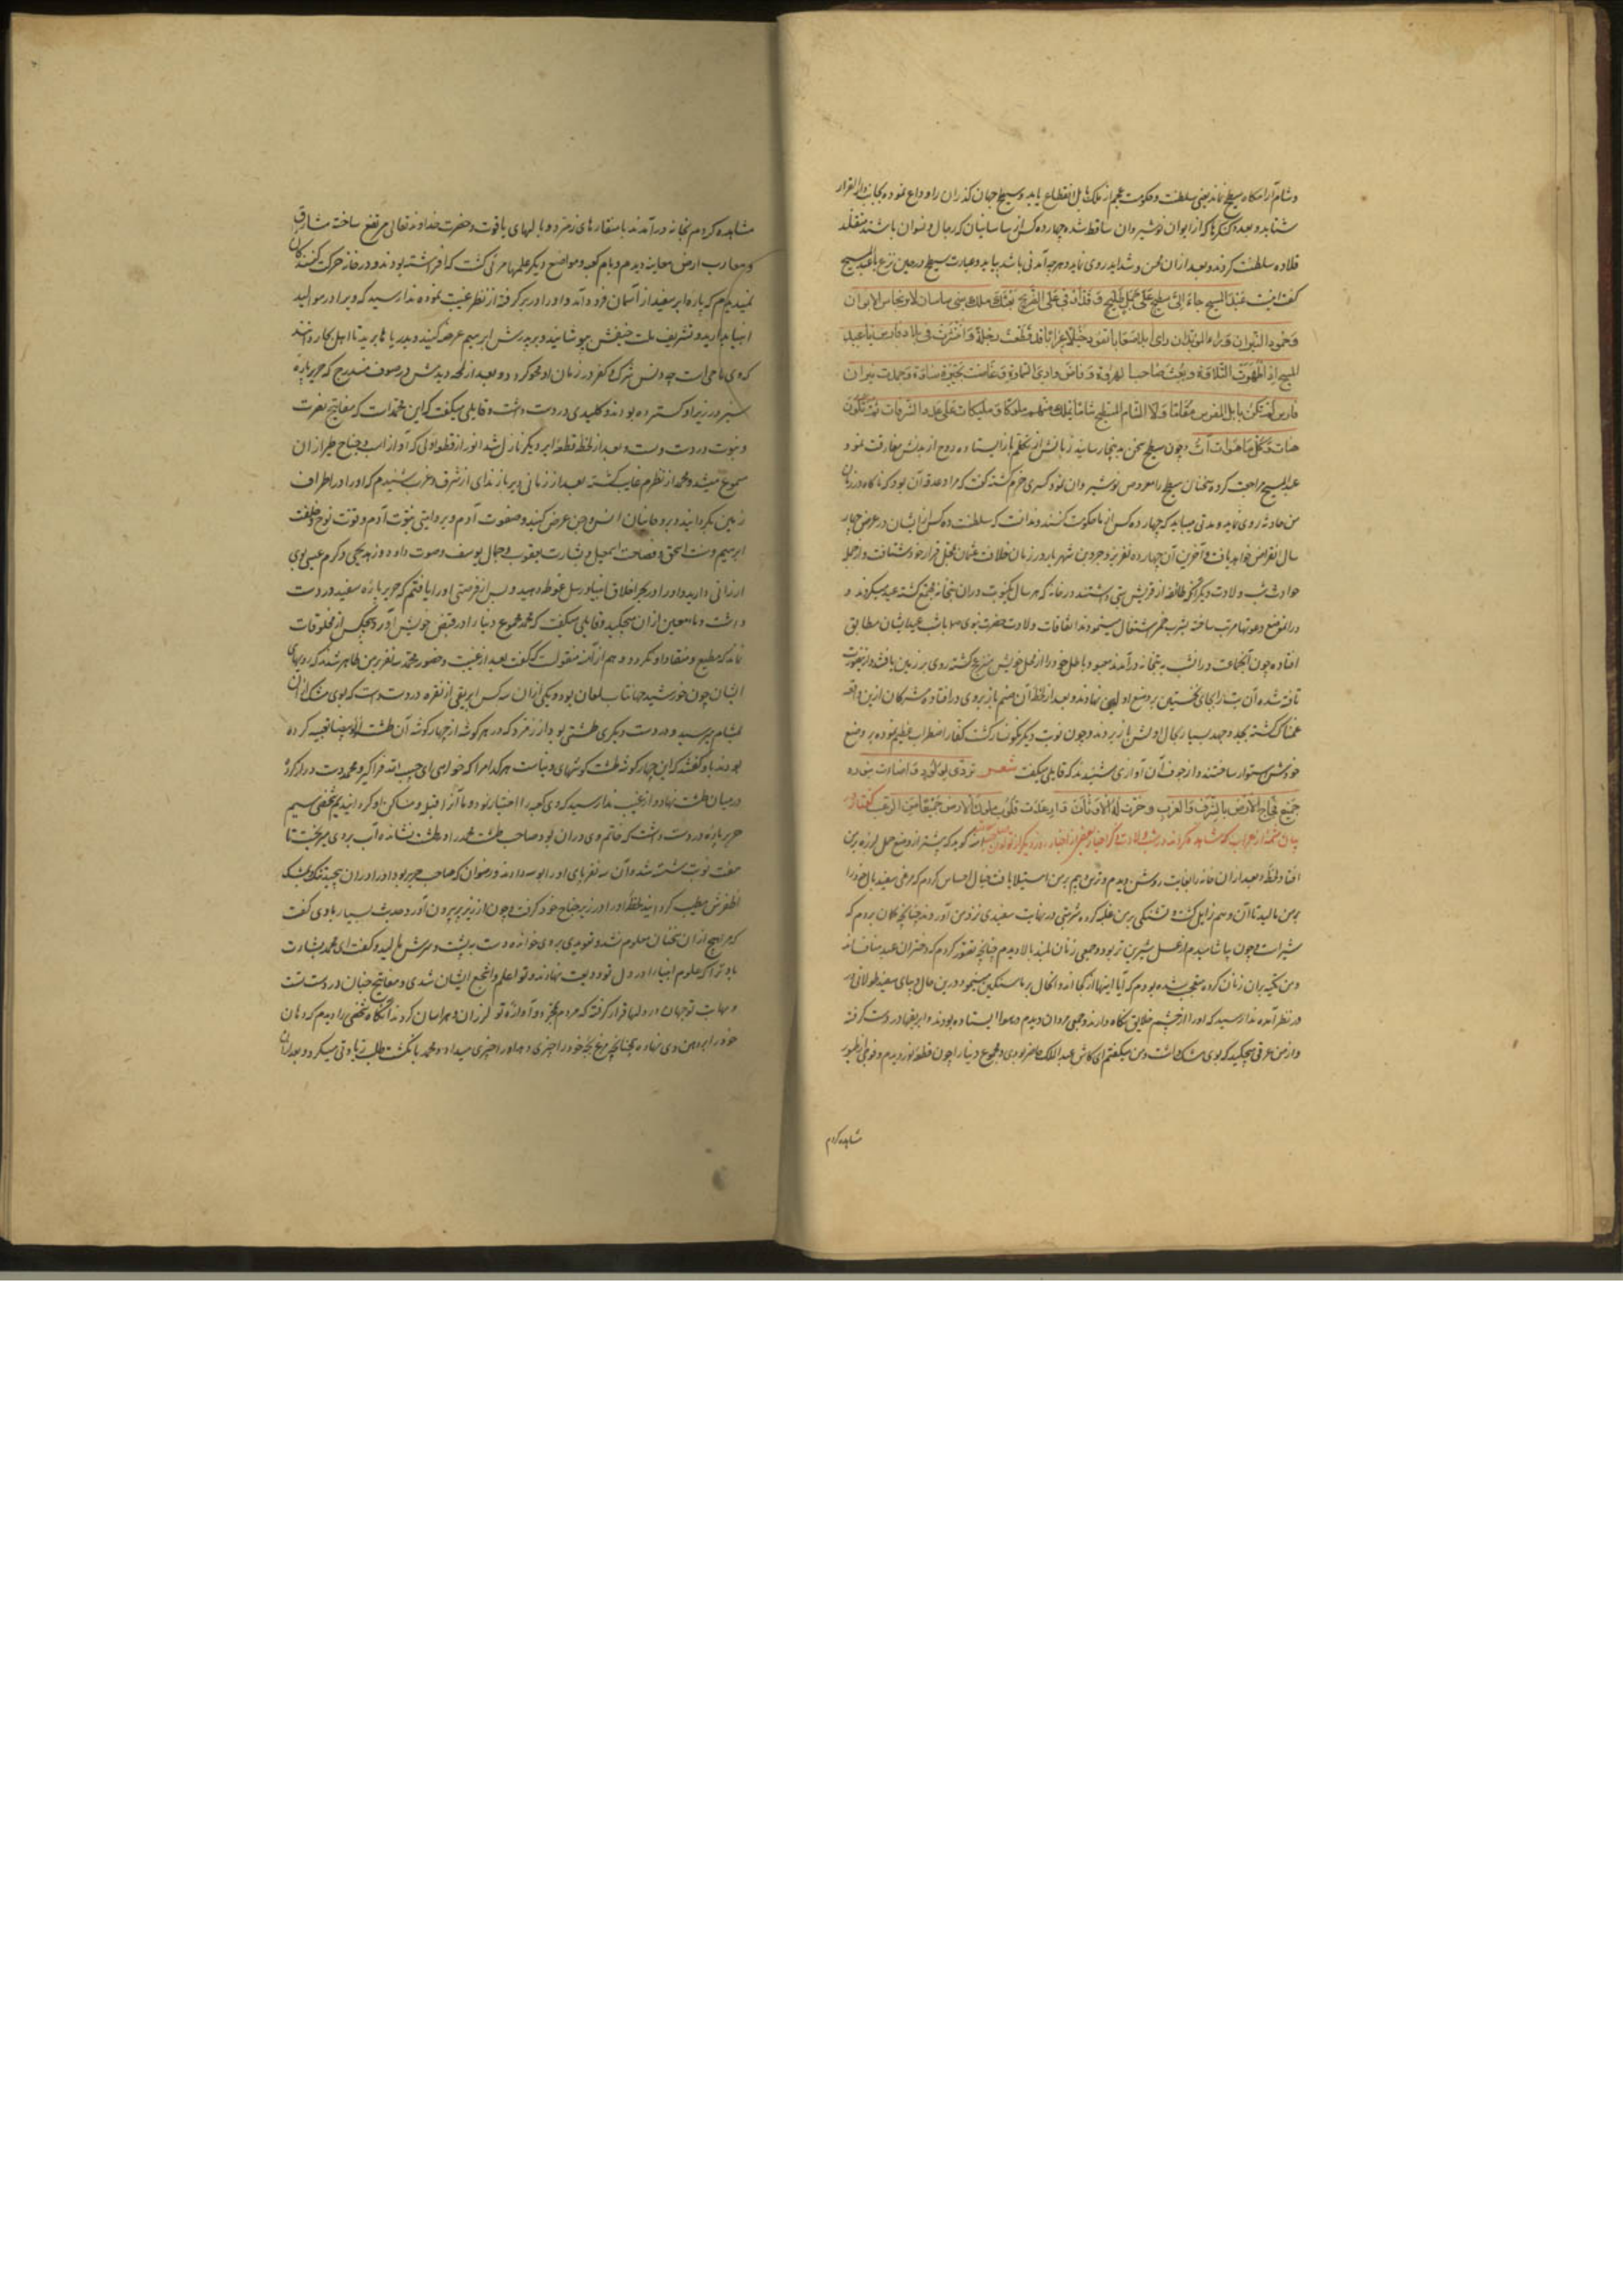 وشام آرامگاه سطیح نماند یعنی سلطنت و حکومت عجم از ملک بابل انقطاع یابد و سطیح جهان گذران را وداع نموده بجانب دار القرار
شتابد و بعدد کنگرها که از ایوان نوشیروان ساقط شده چهارده کس از ساسانیان که رجال و نسوان باشند متقلد
قلاده سلطنت کردند و بعد از ان محن و شداید روی نماید و هرچه آمدنی باشد بیاید و عبارت سطیح در حین نزع با عبد المسیح
عبد المسیح جاء الی سطیح علی جمل وقد اوفی علی الضریح بعثک ملک بنی ساسان لارتجاس الایوان
وخمود النیران ورؤیا الموبذان رای ابلا صعابا تقود خیلا عرابا قد قطعت دجلة وانتشرت فی بلاد فارس یا عبد
المسیح اذا ظهرت التلاوة وبعث صاحب الهراوة وفاض وادی السماوة وغاضت بحیرة ساوة وخمدت نیران
فارس لم تکن بابل للفرس مقاما ولا الشام لسطیح شاما یملک منهم ملوک وملیکات علی عدد الشرفات ثم تکون
هنات وکل ما هو آت آت و چون سطیح سخن بدینجا رسانید زبانش از تکلم باز ایستاده روح از بدنش مفارقت نمود و
عبد المسیح مراجعت کرده سخنان سطیح را معروض نوشیروان نمود کسری خرم گشته گفت که مراد عدقه آن بود که ناگاه در زمان
من حادثه روی نماید و مدتی میباید که چهارده کس از ما حکومت کنند و ندانست که سلطنت ده کس از ایشان در عرض چهار
سال انقراض خواهد یافت و آخرین آن چهارده نفر یزدجرد بن شهریار در زمان خلافت عثمان بمقر قرار خود شتافت و از جمله
حوادث شب ولادت دیگر آنکه طائفه از قریش بتی داشتند در خانه که هر سال یکنوبت در ان بتخانه مجتمع گشته عید میکردند و
در انموضع دعوتها مرتب ساخته بشرب خمر اشتغال مینمودند اتفاقات ولادت حضرت نبوی صلعم با شب عید ایشان مطابق
افتاده چون آنجماعت در انشب به بتخانه درآمدند معبود باطل خود را از محل خویش منزعج گشته روی بر زمین یافتند از این صورت
تافته شده آن بت را بجای نخستین بر وضع اولین نهادند و بعد از لحظه آن صنم باز بروی در افتاده مشرکان ازین واقعه
غمناک گشته بجد و جهد بسیار بحال اولش باز بردند و چون نوبت دیگر نگونسار گشت کفار اضطراب عظیم نموده بر وضع
خودش استوار ساختند و از جوف آن آوازی شنیدند که قایلی میگفت شعر تردی لمولود اضاءت بنوره
جمیع فجاج الارض بالشرق والغرب وخرت له الاوثان وارعدت قلوب ملوک الارض جمیعا من الرعب گفتار
بیان شمه از غرایب که مشاهده کردند در شب ولادت و ذکر اخبار بعضی از اخبار آمنه گوید که پیشتر از وضع حمل لرزه بر من
افتاد و لحظه بعد از ان خانه را بغایت روشن دیدم و ترس و بیم بر من استیلا یافت خیال احساس کردم که مرغی سفید بال خود را
بر من مالید تا آن وهم زایل گشت و تشنگی بر من غلبه کرده شربتی در نهایت سفیدی نزد من آوردند چنانچه گمان بردم که
شیر است و چون بیاشامیدم از عسل شیرین تر بود و جمعی زنان بلند بالا دیدم چنانچه تصور کردم که دختران عبد مناف اند
و من تکیه بران زنان کرده متعجب شده بودم که آیا اینها از کجا اند و انحال بر ما سنگین مینمود و درین حال دیبای سفید طولانی
در نظر آمده ندا رسید که او را از چشم خلایق نگاه دارند و جمعی مردان دیدم در هوا ایستاده بودند و ابریقها در دست گرفته
و از من عرقی میچکید که بوی مشک داشت و من میگفتم ای کاش عبد المطلب حاضر بودی و مجموع دنیا را چون قطعه نور دیدم و فوجی از طیور
مشاهده کردم
مشاهده کردم بخانه درآمدند با منقارهای زمرد و بالهای یاقوت و حضرت خداوند تعالی مرتفع ساخته مشارق
و مغارب ارض معاینه دیدم و بام کعبه و مواضع دیگر علمها مرئی گشت که افراشته بودند و در خانه حرکت کنندگان
نمیدیدم که پاره ابر سفید از آسمان فرود آمد و او را در بر گرفته از نظر غیبت نموده ندا رسید که ویرا در موالید
انبیا بدارید و تشریف ملت حنیفش بپوشانید و بر پدرش ابرهیم عرضه کنید و بدریاها برید تا اهل بحار دانند
که وی ماحی است چه دنس شرک و کفر در زمان او محو گردد و بعد از لحظه دیدمش در صوف مندرج که حریر پاره
سبز در زیر او گسترده بودند و کلیدی در دست داشت و قایلی میگفت که این محمد است که مفاتیح نصرت
و نبوت در دست اوست و بعد از لحظه قطعه ابر دیگر نازل شد انور از قطعه اولی که آواز اسب و جناح طیر از ان
مسموع میشد و محمد از نظرم غایب گشته بعد از زمانی دیر باز ندای از شرق و غرب شنیدم که او را در اطراف
زمین بگردانید و بر روحانیان انس و جن عرض کنید و صفوت آدم و نبوت آدم و قوت نوح و خلقت
ابرهیم و سنت اسحق و فصاحت اسمعیل و بشارت یعقوب و جمال یوسف و صوت داود و زهد یحیی و کرم عیسی بوی
ارزانی دارید و او را در بحر اخلاق انبیا و رسل غوطه دهید و پس از فرصتی او را یافتم که حریر پاره سفید در دست
داشت و ماء معین از ان میچکید و قایلی میگفت که محمد مجموع دنیا را در قبض خویش آورد و هیچکس از مخلوقات
نماند که مطیع و منقاد او نگردد و هم از آمنه منقولست که گفت بعد از غیبت و حضور محمد سه نفر بر من ظاهر شدند که رویهای
ایشان چون خورشید جهانتاب لمعان بود و یکی از ان سه کس ابریقی از نقره در دست داشت که بوی مشک از ان
بمشام میرسید و در دست دیگری طشتی بود از زمرد که در هر گوشه از چهار گوشه آن طشت لؤلؤ بیضا تعبیه کرده
بودند باو گفتند که این چهار گوشه طشت گوشهای دنیاست هر کدام را که خواهی ای حبیب الله فرا گیر و محمد دست دراز کرده
در میان طشت نهاد و از غیب ندا رسید که وی کعبه را اختیار نمود و ما آنرا قبله و مسکن او گردانیدیم شخص سیم
حریر پاره در دست داشت که خاتم وی در ان بود و صاحب طشت محمد را در طشت نشانده آب بروی میریخت تا
هفت نوبت شسته شد و آن سه نفر پای او را بوسه دادند و رضوان که صاحب حریر بود او را در ان پیچید
اظفرش مطیب گردانید لحظه او را در زیر جناح خود گرفت و چون از زیر پر بیرون آورد حدیث بسیار با وی گفت
که مرا هیچ از ان سخنان معلوم نشد و تعویذی بروی خوانده دست به پشت و سرش مالید و گفت ای محمد بشارت
باد ترا که علوم انبیا را در دل تو ودیعت نهادند و تو اعلم و اشجع ایشان شدی و مفاتیح جنان در دست تست
و مهابت تو جهان در دلها قرار گرفته که مردم بمجرد آوازه تو لرزان و هراسان گردند آنگاه شخصی را دیدم که دهان
خود را بر دهن وی نهاده چنانچه مرغ بچه خود را چیزی دهد او را چیزی میداد و محمد بانگشت طلب زیادتی میکرد و بعد از ان